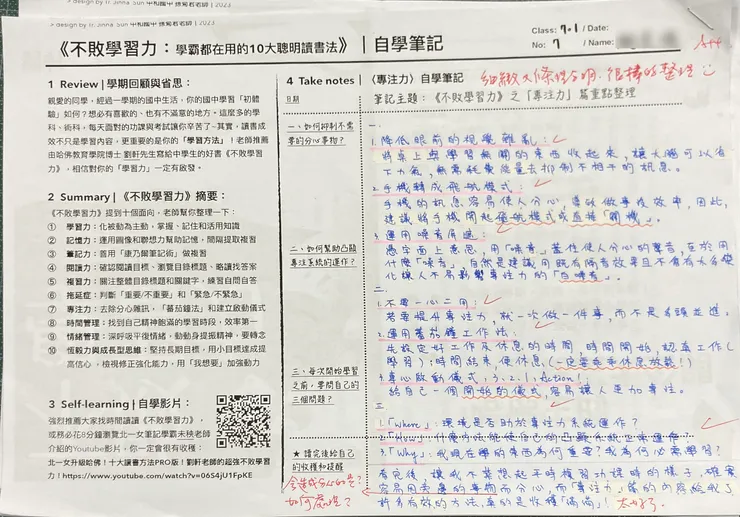 > design by Tr. Jinna. Sun 中和國中 孫菊君老師 | 2023
> design by Tr. Jinna. Sun 中和國中 孫菊君老師 | 2023
《不敗學習力：學霸都在用的10大聰明讀書法》｜自學筆記
Class: 701 / Date:
No: 7 / Name:
A++
1 Review | 學期回顧與省思：
親愛的同學，經過一學期的國中生活，你的國中學習「初體
驗」如何？想必有喜歡的、也有不滿意的地方，這麼多的學
科、術科，每天面對的功課與考試讓你辛苦了~其實，讀書成
效不只是學習內容，更重要的是你的「學習方法」！老師推薦
由哈佛教育學院博士 劉軒先生寫給中學生的好書《不敗學習
力》，相信對你的「學習力」一定有啟發。
2 Summary |《不敗學習力》摘要：
《不敗學習力》提到十個面向，老師幫你整理一下：
① 學習力：化被動為主動，掌握、記住和活用知識
② 記憶力：運用圖像和聯想力幫助記憶，間隔提取複習
③ 筆記力：善用「康乃爾筆記術」做複習
④ 閱讀力：確認閱讀目標、瀏覽目錄標題，略讀找答案
⑤ 複習力：關注整錄目標題和關鍵字，練習自問自答
⑥ 拖延症：判斷「重要/不重要」和「緊急/不緊急」
⑦ 專注力：去除分心雜訊，「蕃茄鐘法」和建立啟動儀式
⑧ 時間管理：找到自己精神飽滿的學習時段，效率第一
⑨ 情緒管理：深呼吸平復情緒，動動身提振精神，要轉念
⑩ 恆毅力與成長型思維：堅持長期目標，用小目標達成提
高信心，檢視修正強化能力，用「我想要」加強動力
3 Self-learning | 自學影片：
強烈推薦大家找時間讀讀《不敗學習力》，
或務必花8分鐘瀏覽北一女筆記學霸未秧老師
介紹的Youtube影片，你一定會很有收穫：
北一女升級給佛！十大讀書方法PRO版！劉軒老師的超強不敗學習
力！https://www.youtube.com/watch?v=06S4jU1FpKE
4 Take notes |〈專注力〉自學筆記
細緻又條理分明，很棒的整理
日期
筆記主題：《不敗學習力》之「專注力」篇重點整理
一、如何抑制不需
要的分心事物？
二、如何幫助凸顯
專注系統的運作？
三、每次開始學習
之前，要問自己的
三個問題？
★ 讀完後給自己
的收穫和提醒
一、
1. 降低眼前的視覺雜亂：
將桌上與學習無關的東西收起來，讓大腦可以省
下力氣，無需耗費能量去抑制不相干的訊息。
2. 手機轉成飛航模式：
手機的訊息容易使人分心，導致做事沒效率，因此，
建議將手機開起飛航模式或直接「關機」。
3. 運用噪音屏遮：
照字面上意思，用「噪音」蓋住使人分心的聲音，至於用
什麼「噪音」，自然是建議用既有隔音效果且不會有太多變
化讓人不易影響專注力的「白噪音」。
二、
1. 不要一心二用：
若要提升專注力，就一次做一件事，而不是多頭並進。
2. 運用蕃茄鐘工作法：
先設定好工作及休息的時間，時間開始，認真工作(
學習)；時間結束，便休息(一定要乖乖休息放鬆！)
3. 專心啟動儀式，3、2、1，Action！
給自己一個開始的儀式，容易讓人更加專注。
三、
1.「Where」：環境是否助於專注力系統運作？
2.「How」：什麼方法能使自己的凸顯系統正常運作？
3.「Why」：我現在學的東西為何重要？我為何必需學習？
看完後，讓我不禁想起平時複習功課時的樣子，確實
容易因旁邊的事物而分心，而「專注力」篇的內容給我了
許多有效的方法，真的是收穫「滿滿」！太好了
會造成分心的是？
如何處理？